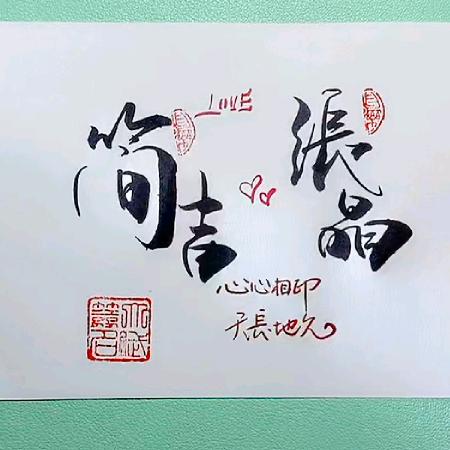 简吉
LOVE
張晶
心心相印
天長地久